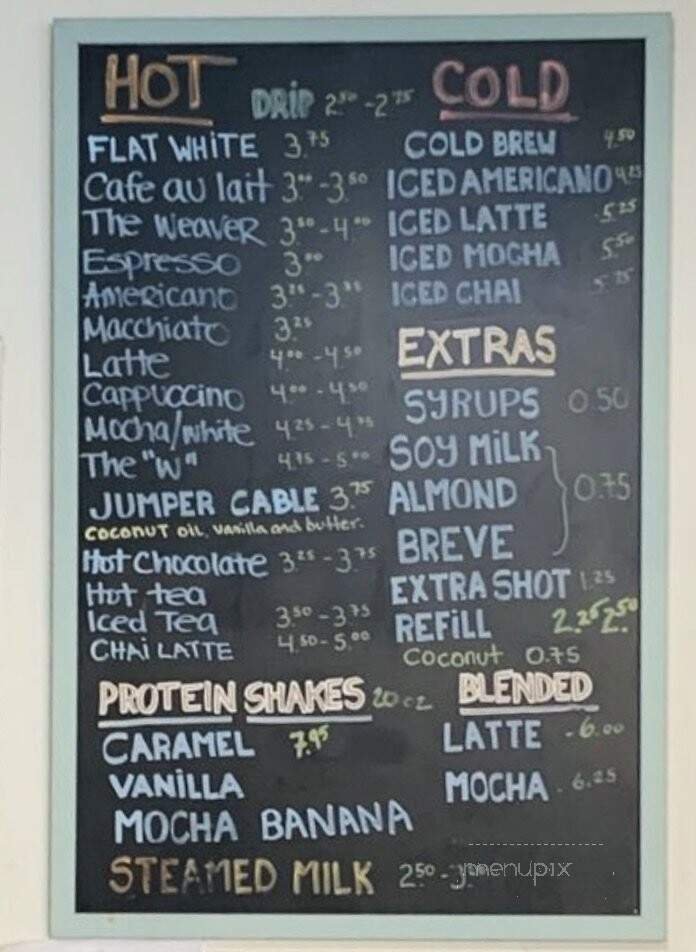 HOT
DRIP 2.50 - 2.75
FLAT WHITE 3.75
Cafe au lait 3.00 - 3.50
The Weaver 3.50 - 4.00
Espresso 3.00
Americano 3.25 - 3.75
Macchiato 3.25
Latte 4.00 - 4.50
Cappuccino 4.00 - 4.50
Mocha/white 4.25 - 4.75
The "W" 4.75 - 5.00
JUMPER CABLE 3.75
coconut oil, vanilla and butter.
Hot Chocolate 3.25 - 3.75
Hot tea
Iced Tea 3.50 - 3.75
CHAI LATTE 4.50 - 5.00
COLD
COLD BREW 4.50
ICED AMERICANO 4.25
ICED LATTE 5.25
ICED MOCHA 5.50
ICED CHAI 5.75
EXTRAS
SYRUPS 0.50
SOY MILK
ALMOND 0.75
BREVE
EXTRA SHOT 1.25
REFILL 2.25 2.50
Coconut 0.75
PROTEIN SHAKES 20 oz
CARAMEL 7.95
VANILLA
MOCHA BANANA
BLENDED
LATTE - 6.00
MOCHA - 6.25
STEAMED MILK 2.50 -
menupix